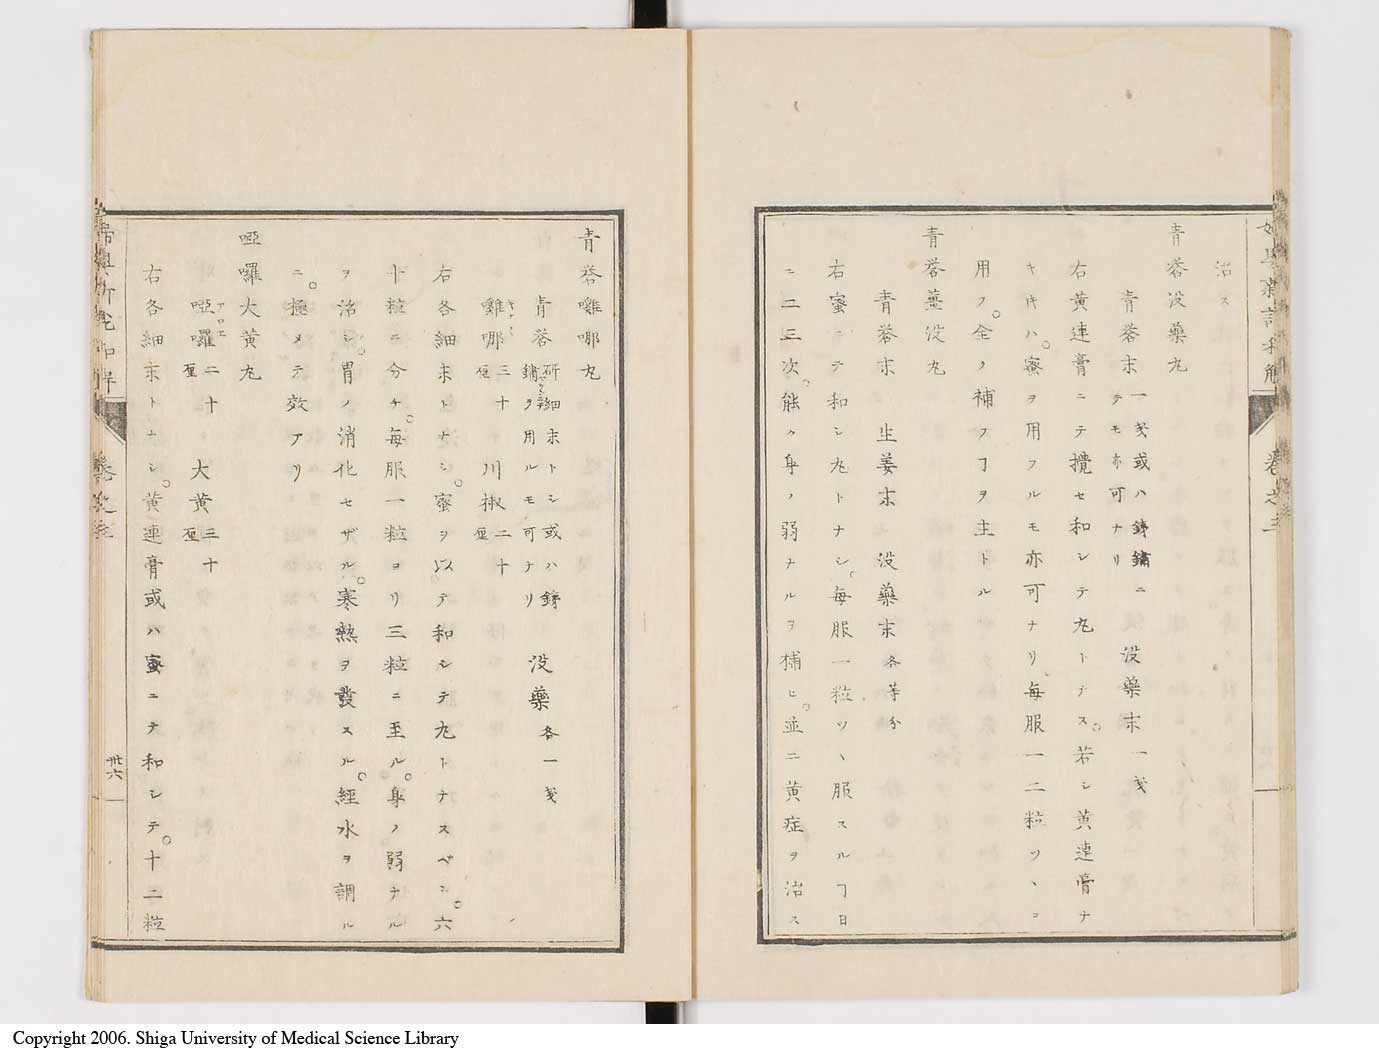 治ス
青蓉没藥丸
青蓉末 一戔或ハ鋳鏽ニテモ亦可ナリ 没藥末 一戔
右黄連膏ニテ攪セ和シテ丸トナス。若シ黄連膏ナ
キキハ。蜜ヲ用フルモ亦可ナリ。毎服一二粒ツヽヨ
用フ。全ク補フヿヲ主トル
青蓉薑没丸
青蓉末 生姜末 没藥末 各等分
右蜜ニテ和シ丸トナシ。毎服一粒ツヽ服スルヿ日
ニ二三次。能ク身ノ弱ナルヲ補ヒ。並ニ黄症ヲ治ス
卷之三
青蓉囄哪丸
青蓉 研細末トシ或ハ鋳鏽ヲ用ルモ可ナリ 没藥 各一戔
囄哪 三十厘 川椒 二十厘
右各細末トナシ。蜜ヲ以テ和シテ丸トナスベシ。六
十粒ニ分チ。毎服一粒ヨリ三粒ニ至ル。身ノ弱ナル
ヲ治シ。胃ノ消化セザル。寒熱ヲ發スル。經水ヲ調ル
ニ。極メテ效アリ
啞囉大黄丸
啞囉 アロエ 二十厘 大黄 三十厘
右各細末トナシ。黄連膏或ハ蜜ニテ和シテ。十二粒
卅六
Copyright 2006. Shiga University of Medical Science Library